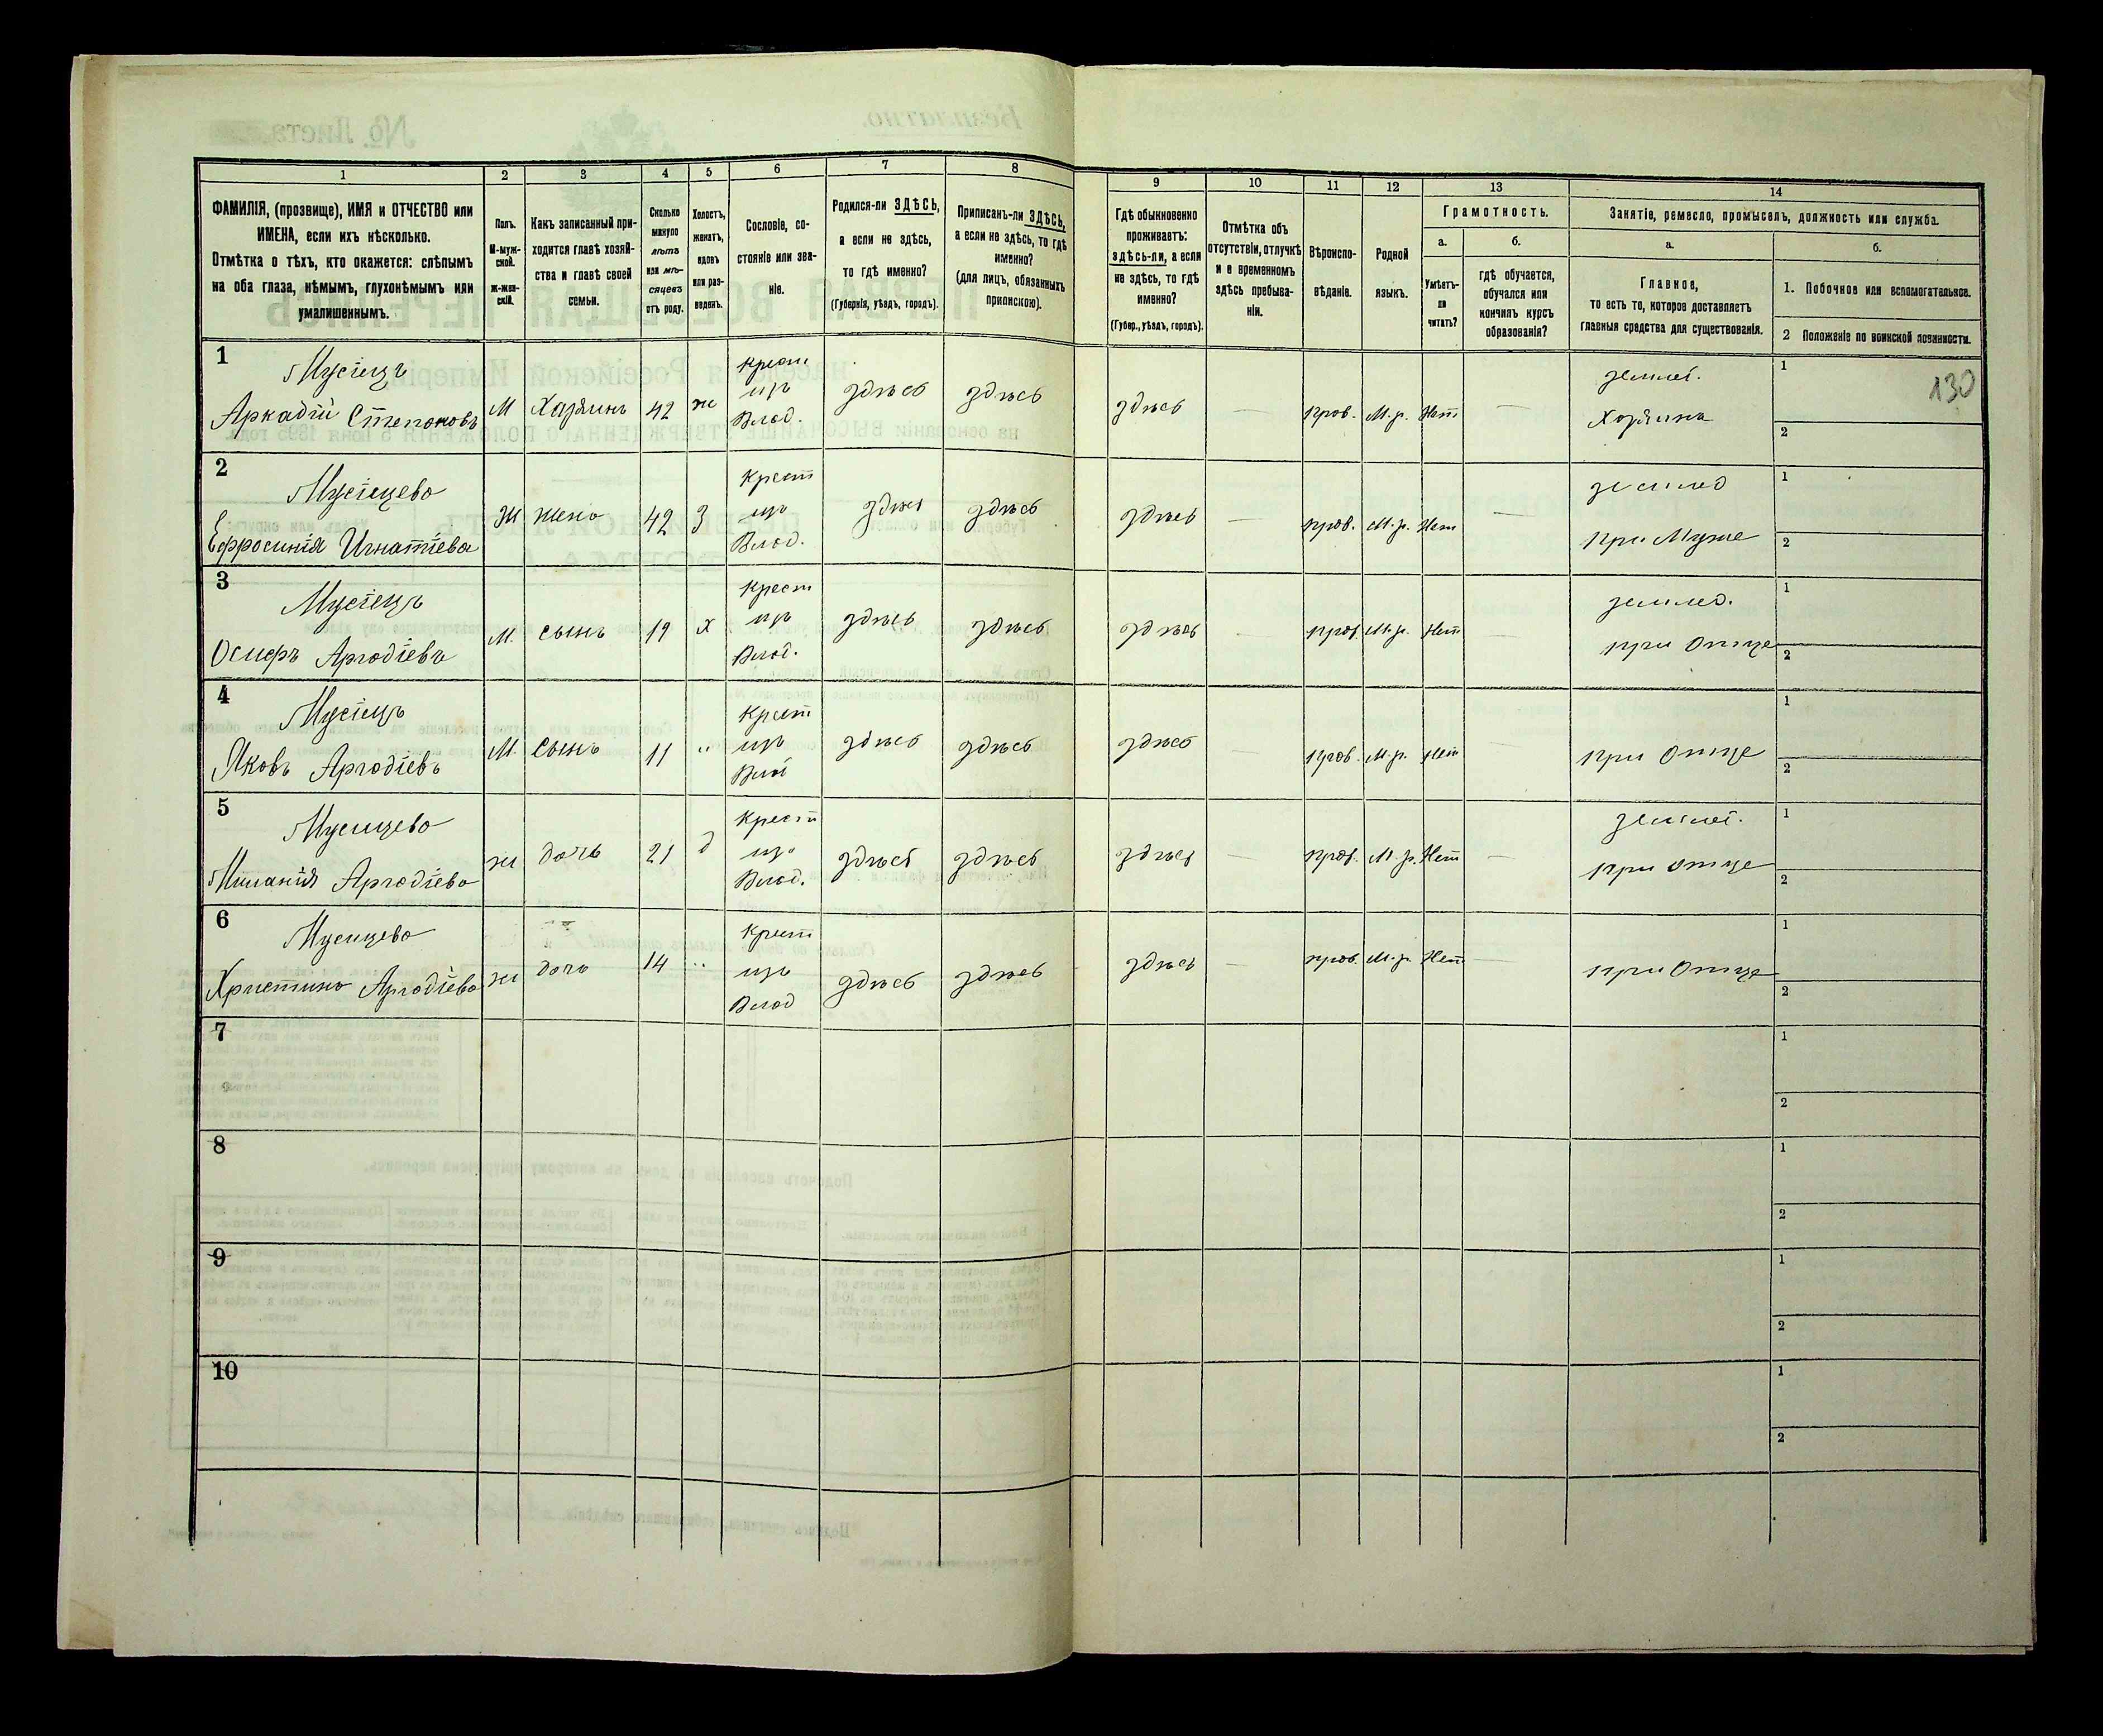 1
2
3
4
5
6
7
8
9
10
11
12
13
14
ФАМИЛІЯ, (прозвище), ИМЯ и ОТЧЕСТВО или
ИМЕНА, если ихъ нѣсколько.
Отмѣтка о тѣхъ, кто окажется: слѣпымъ
на оба глаза, нѣмымъ, глухонѣмымъ или
умалишеннымъ.
Полъ.
М-муж-
ской.
Ж-жен-
скій.
Какъ записанный при-
ходится главѣ хозяй-
ства и главѣ своей
семьи.
Сколько
минуло
лѣтъ
или мѣ-
сяцевъ
отъ роду.
Холостъ,
женатъ,
вдовъ
или раз-
веденъ.
Сословіе, со-
стояніе или зва-
ніе.
Родился-ли ЗДѢСЬ,
а если не здѣсь,
то гдѣ именно?
(Губернія, уѣздъ, городъ).
Приписанъ-ли ЗДѢСЬ,
а если не здѣсь, то гдѣ
именно?
(для лицъ, обязанныхъ
припискою).
Гдѣ обыкновенно
проживаетъ:
здѣсь-ли, а если
не здѣсь, то гдѣ
именно?
(Губер., уѣздъ, городъ).
Отмѣтка объ
отсутствіи, отлучкѣ
и о временномъ
здѣсь пребыва-
ніи.
Вѣроиспо-
вѣданіе.
Родной
языкъ.
Грамотность.
а.
Умѣетъ-
ли
читать?
б.
гдѣ обучается,
обучался или
кончилъ курсъ
образованія?
Занятіе, ремесло, промыселъ, должность или служба.
а.
Главное,
то есть то, которое доставляетъ
главныя средства для существованія.
б.
1. Побочное или вспомогательное.
2 Положеніе по воинской повинности.
130
1
Мусіецъ
Аркадій Степановъ
М
Хазяинъ
42
ж
Крест
изъ
Влад.
здѣсь
здѣсь
здѣсь
—
прав.
М. р.
Нет
—
землед.
Хозяина
1
2
2
Мусіецева
Ефросинія Игнатіева
Ж
жена
42
З
Крест
изъ
Влад.
здѣсь
здѣсь
здѣсь
—
прав.
М. р.
Нет
—
землед
при Муже
1
2
3
Мусіецъ
Осифъ Аркадіевъ
М.
сынъ
19
х
Крест
изъ
Влад.
здѣсь
здѣсь
здѣсь
—
прав.
М. р.
Нет
—
землед.
при Отце
1
2
4
Мусіецъ
Яковъ Аркадіевъ
М.
Сынъ
11
"
Крест
изъ
Влад
здѣсь
здѣсь
здѣсь
—
прав.
М. р.
Нет
—
при Отце
1
2
5
Мусицева
Миланія Аркадіева
ж
дочь
21
д
Крест
изъ
Влад.
здѣсь
здѣсь
здѣсь
—
прав.
М. р.
Нет
—
землед.
при отце
1
2
6
Мусицева
Христина Аркадіева
ж
дочь
14
"
Крест
изъ
Влад
здѣсь
здѣсь
здѣсь
—
прав.
М. р.
Нет
—
при Отце
1
2
7
1
2
8
1
2
9
1
2
10
1
2